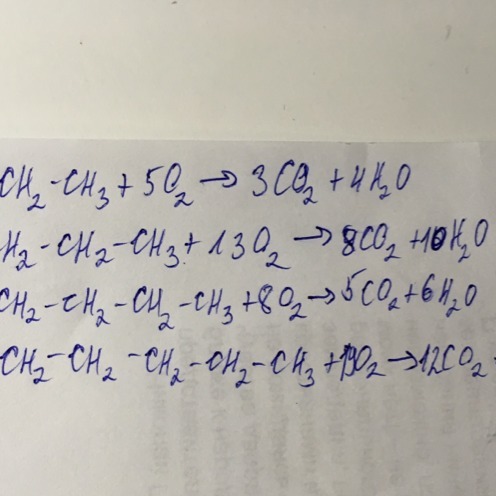 CH₂-CH₃ + 5O₂ → 3CO₂ + 4H₂O
H₂-CH₂-CH₃ + 13O₂ → 8CO₂ + 10H₂O
CH₂-CH₂-CH₂-CH₃ + 8O₂ → 5CO₂ + 6H₂O
CH₂-CH₂-CH₂-CH₂-CH₃ + 19O₂ → 12CO₂